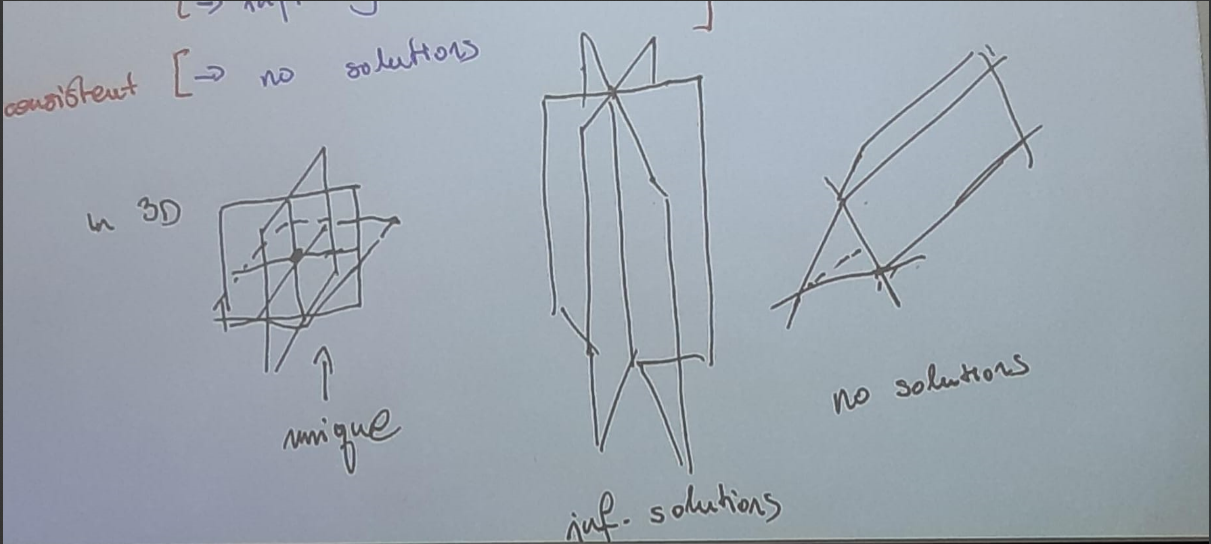 consistent [→ no solutions
in 3D
unique
inf. solutions
no solutions